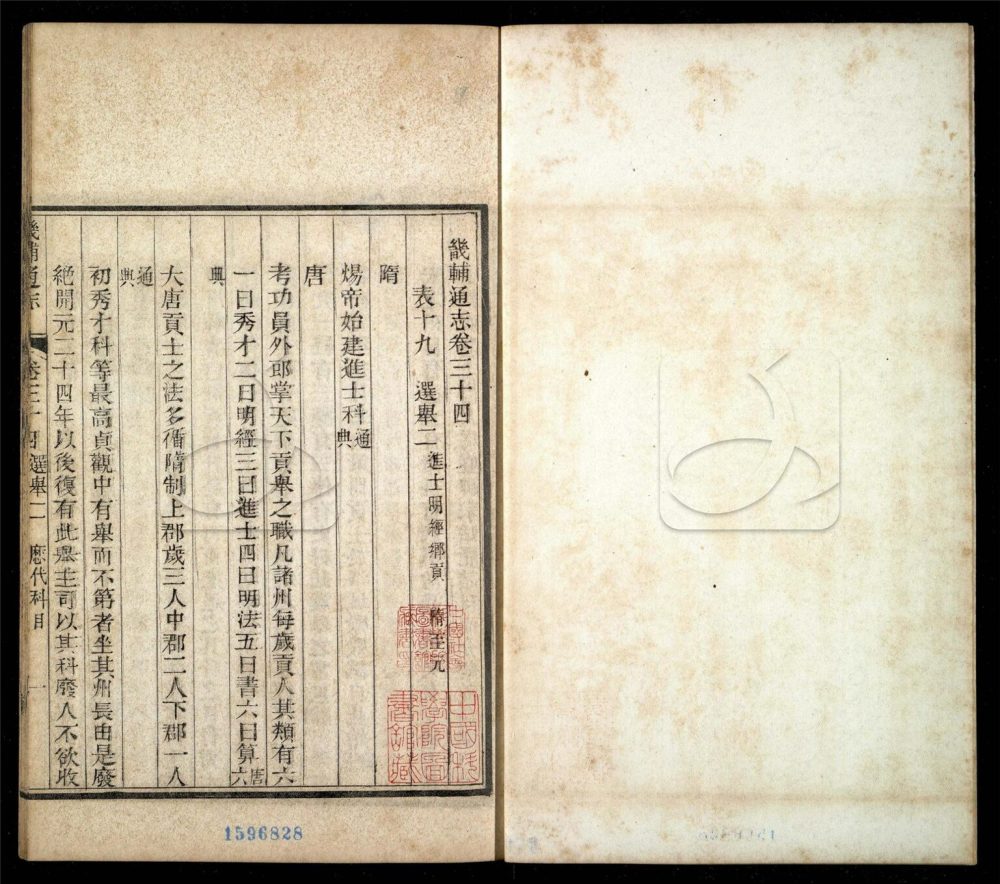 畿輔通志卷三十四
表十九　選舉二 進士明經鄉貢 隋至元
隋
煬帝始建進士科 通典
唐
考功員外郎掌天下貢舉之職凡諸州每歲貢人其類有六
一曰秀才二曰明經三曰進士四曰明法五曰書六曰算 唐六
典
大唐貢士之法多循隋制上郡歲三人中郡二人下郡一人
通典
初秀才科等最高貞觀中有舉而不第者坐其州長由是廢
絶開元二十四年以後復有此舉主司以其科廢人不欲收
畿輔通志 卷三十四 選舉二 歷代科目 一
中國科學院圖書館藏
1596828